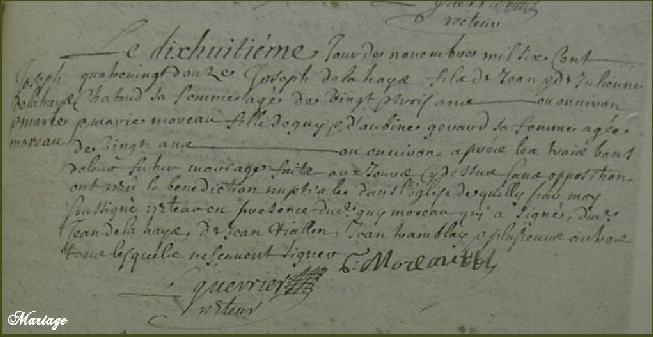 recteur
Le dixhuitiéme Jour de novembre mil six Cent
quatrevingt douze Joseph delahaye fils de Jean & de Julienne
Chataud sa femme agé de vingt & trois ans ou environ
& marie moreau fille de guy & d'aubine gerard sa femme agée
de vingt ans ou environ, aprés les trois bans
de leur futur mariage faits aux Jours cy dessus sans opposition
ont receu la benediction nuptiale dans l'eglise de quilly par moy
soussigné recteur en presence dud. guy moreau qui a signé, dud.
Jean delahaye, de Jean Hallen, Jean tramblay & plusieurs autres
tous lesquels ne scauent signer
Joseph
delahaye
& marie
moreau
G. Moreau
guerrier
recteur
Mariage